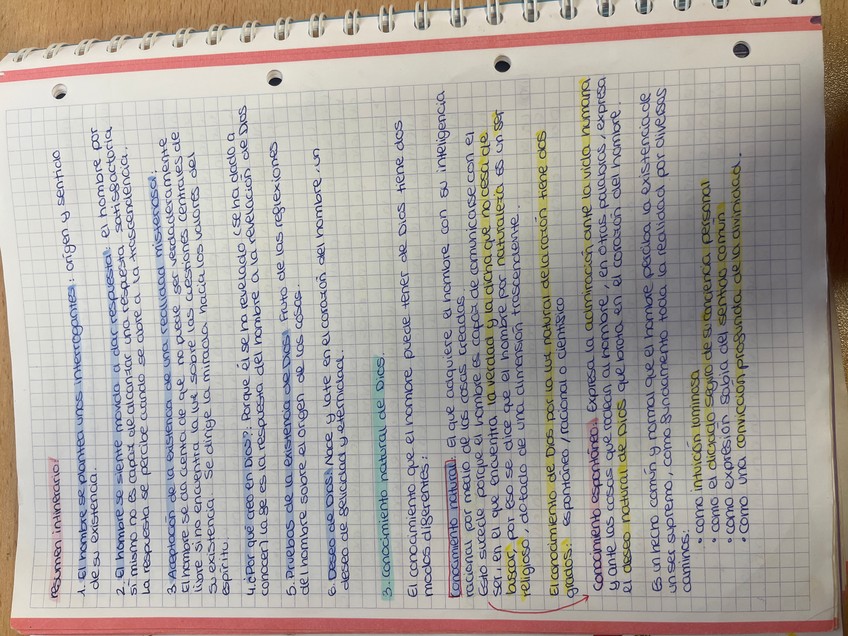 resumen intinerario!
1. El hombre se plantea unos interrogantes: origen y sentido
de su existencia.
2. El hombre se siente movido a dar respuesta: el hombre por
si mismo no es capaz de alcanzar una respuesta satisfactoria
la respuesta se percibe cuando se abre a la trascendencia.
3. Aceptación de la existencia de una realidad misteriosa:
El hombre se da cuenta de que no puede ser verdaderamente
libre si no encuentra la luz sobre las cuestiones centrales de
su existencia. Se dirige la mirada hacia los valores del
espíritu.
4. ¿Por qué creo en Dios?: Porque él se ha revelado, se ha dado a
conocer. La fe es la respuesta del hombre a la revelación de Dios
5. Pruebas de la existencia de Dios: Fruto de las reflexiones
del hombre sobre el origen de las cosas.
6. Deseo de Dios: Nace y late en el corazón del hombre, un
deseo de felicidad y eternidad.
3. Conocimiento natural de Dios.
El conocimiento que el hombre puede tener de Dios tiene dos
modos diferentes:
Conocimiento natural: El que adquiere el hombre con su inteligencia
racional por medio de las cosas creadas.
Esto sucede porque el hombre es capaz de comunicarse con el
ser, en el que encuentra la verdad y la dicha que no cesa de
buscar, por eso se dice que el hombre por naturaleza es un ser
religioso, dotado de una dimensión trascendente.
El conocimiento de Dios por la luz natural de la razón tiene dos
grados: espontáneo / racional o científico
Conocimiento espontáneo: Expresa la admiración ante la vida humana
y ante las cosas que rodean al hombre, en otras palabras, expresa
el deseo natural de Dios que brota en el corazón del hombre.
Es un hecho común y normal que el hombre perciba la existencia de
un ser supremo, como fundamento toda la realidad por diversos
caminos:
• como intuición luminosa
• como el dictado seguro de su conciencia personal
• como expresión sabia del sentido común
• como una convicción profunda de la divinidad.